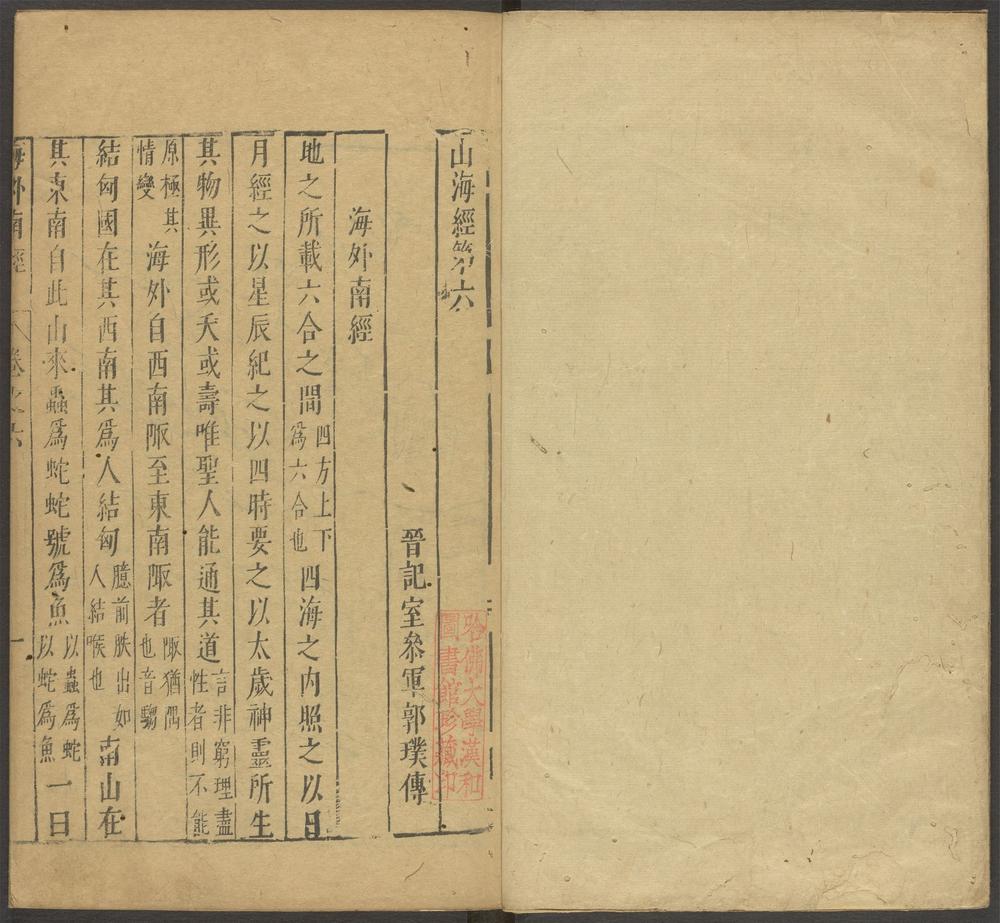 山海經第六
哈佛大學漢和
圖書館珍藏印
晉記室叅軍郭璞傳
海外南經
地之所載六合之間四方上下爲六合也四海之内照之以日
月經之以星辰紀之以四時要之以太歲神靈所生
其物異形或夭或壽唯聖人能通其道言非窮理盡性者則不能
原極其情變海外自西南陬至東南陬者陬猶隅也音騶
結匈國在其西南其爲人結匈臆前胅出如人結喉也南山在
其東南自此山來蟲爲蛇蛇號爲魚以蟲爲蛇以蛇爲魚一曰
海外南經 卷之六 一